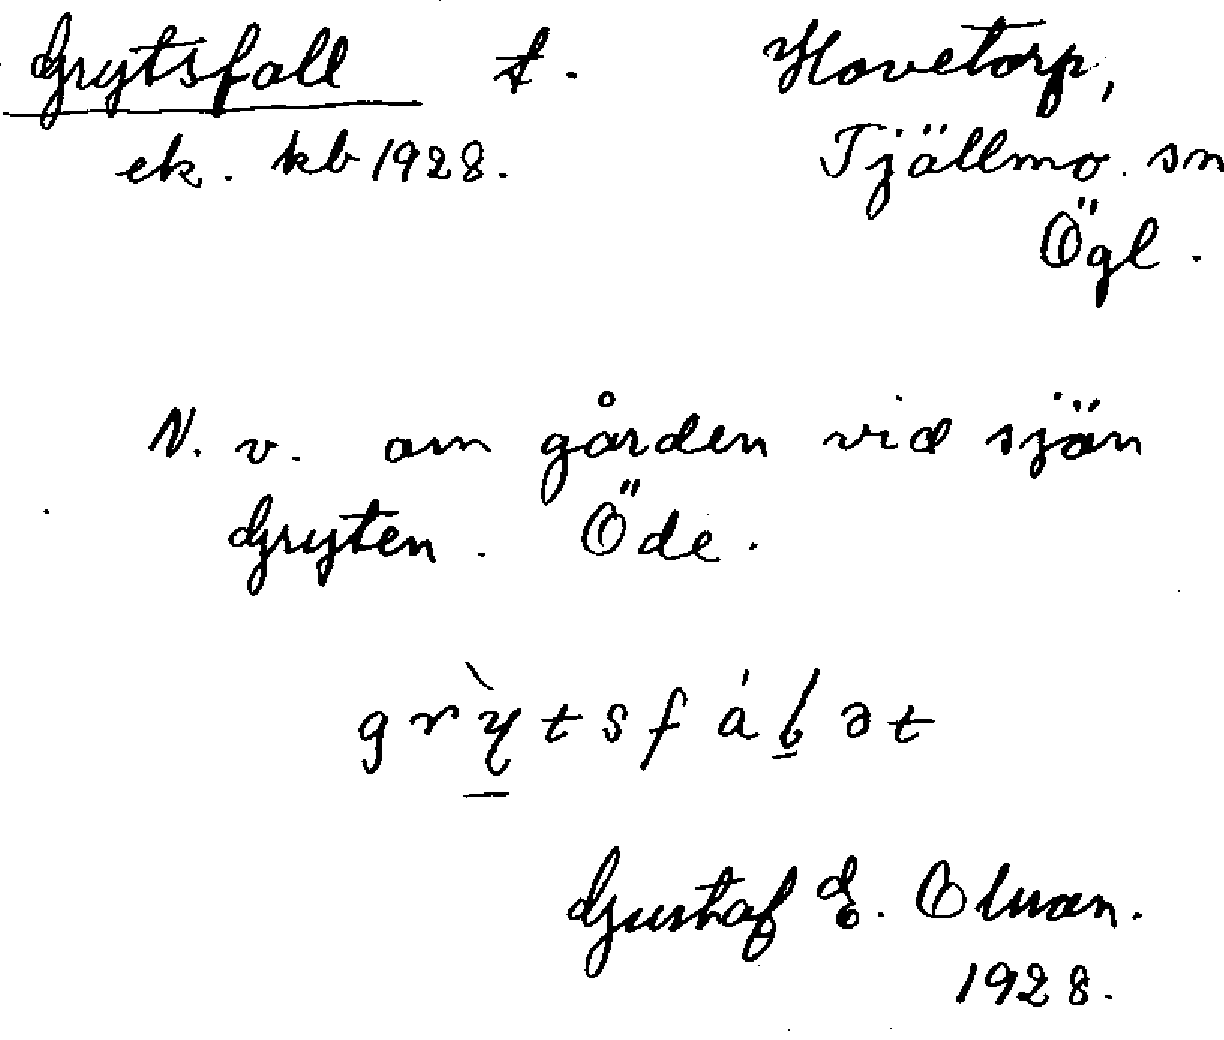 Grytsfall t. Hovetorp,
ek. kb 1928. Tjällmo. sn
Ögl.
N. v. om gården vid sjön
Gryten. Öde.
Gustaf E. Olsson.
1928.